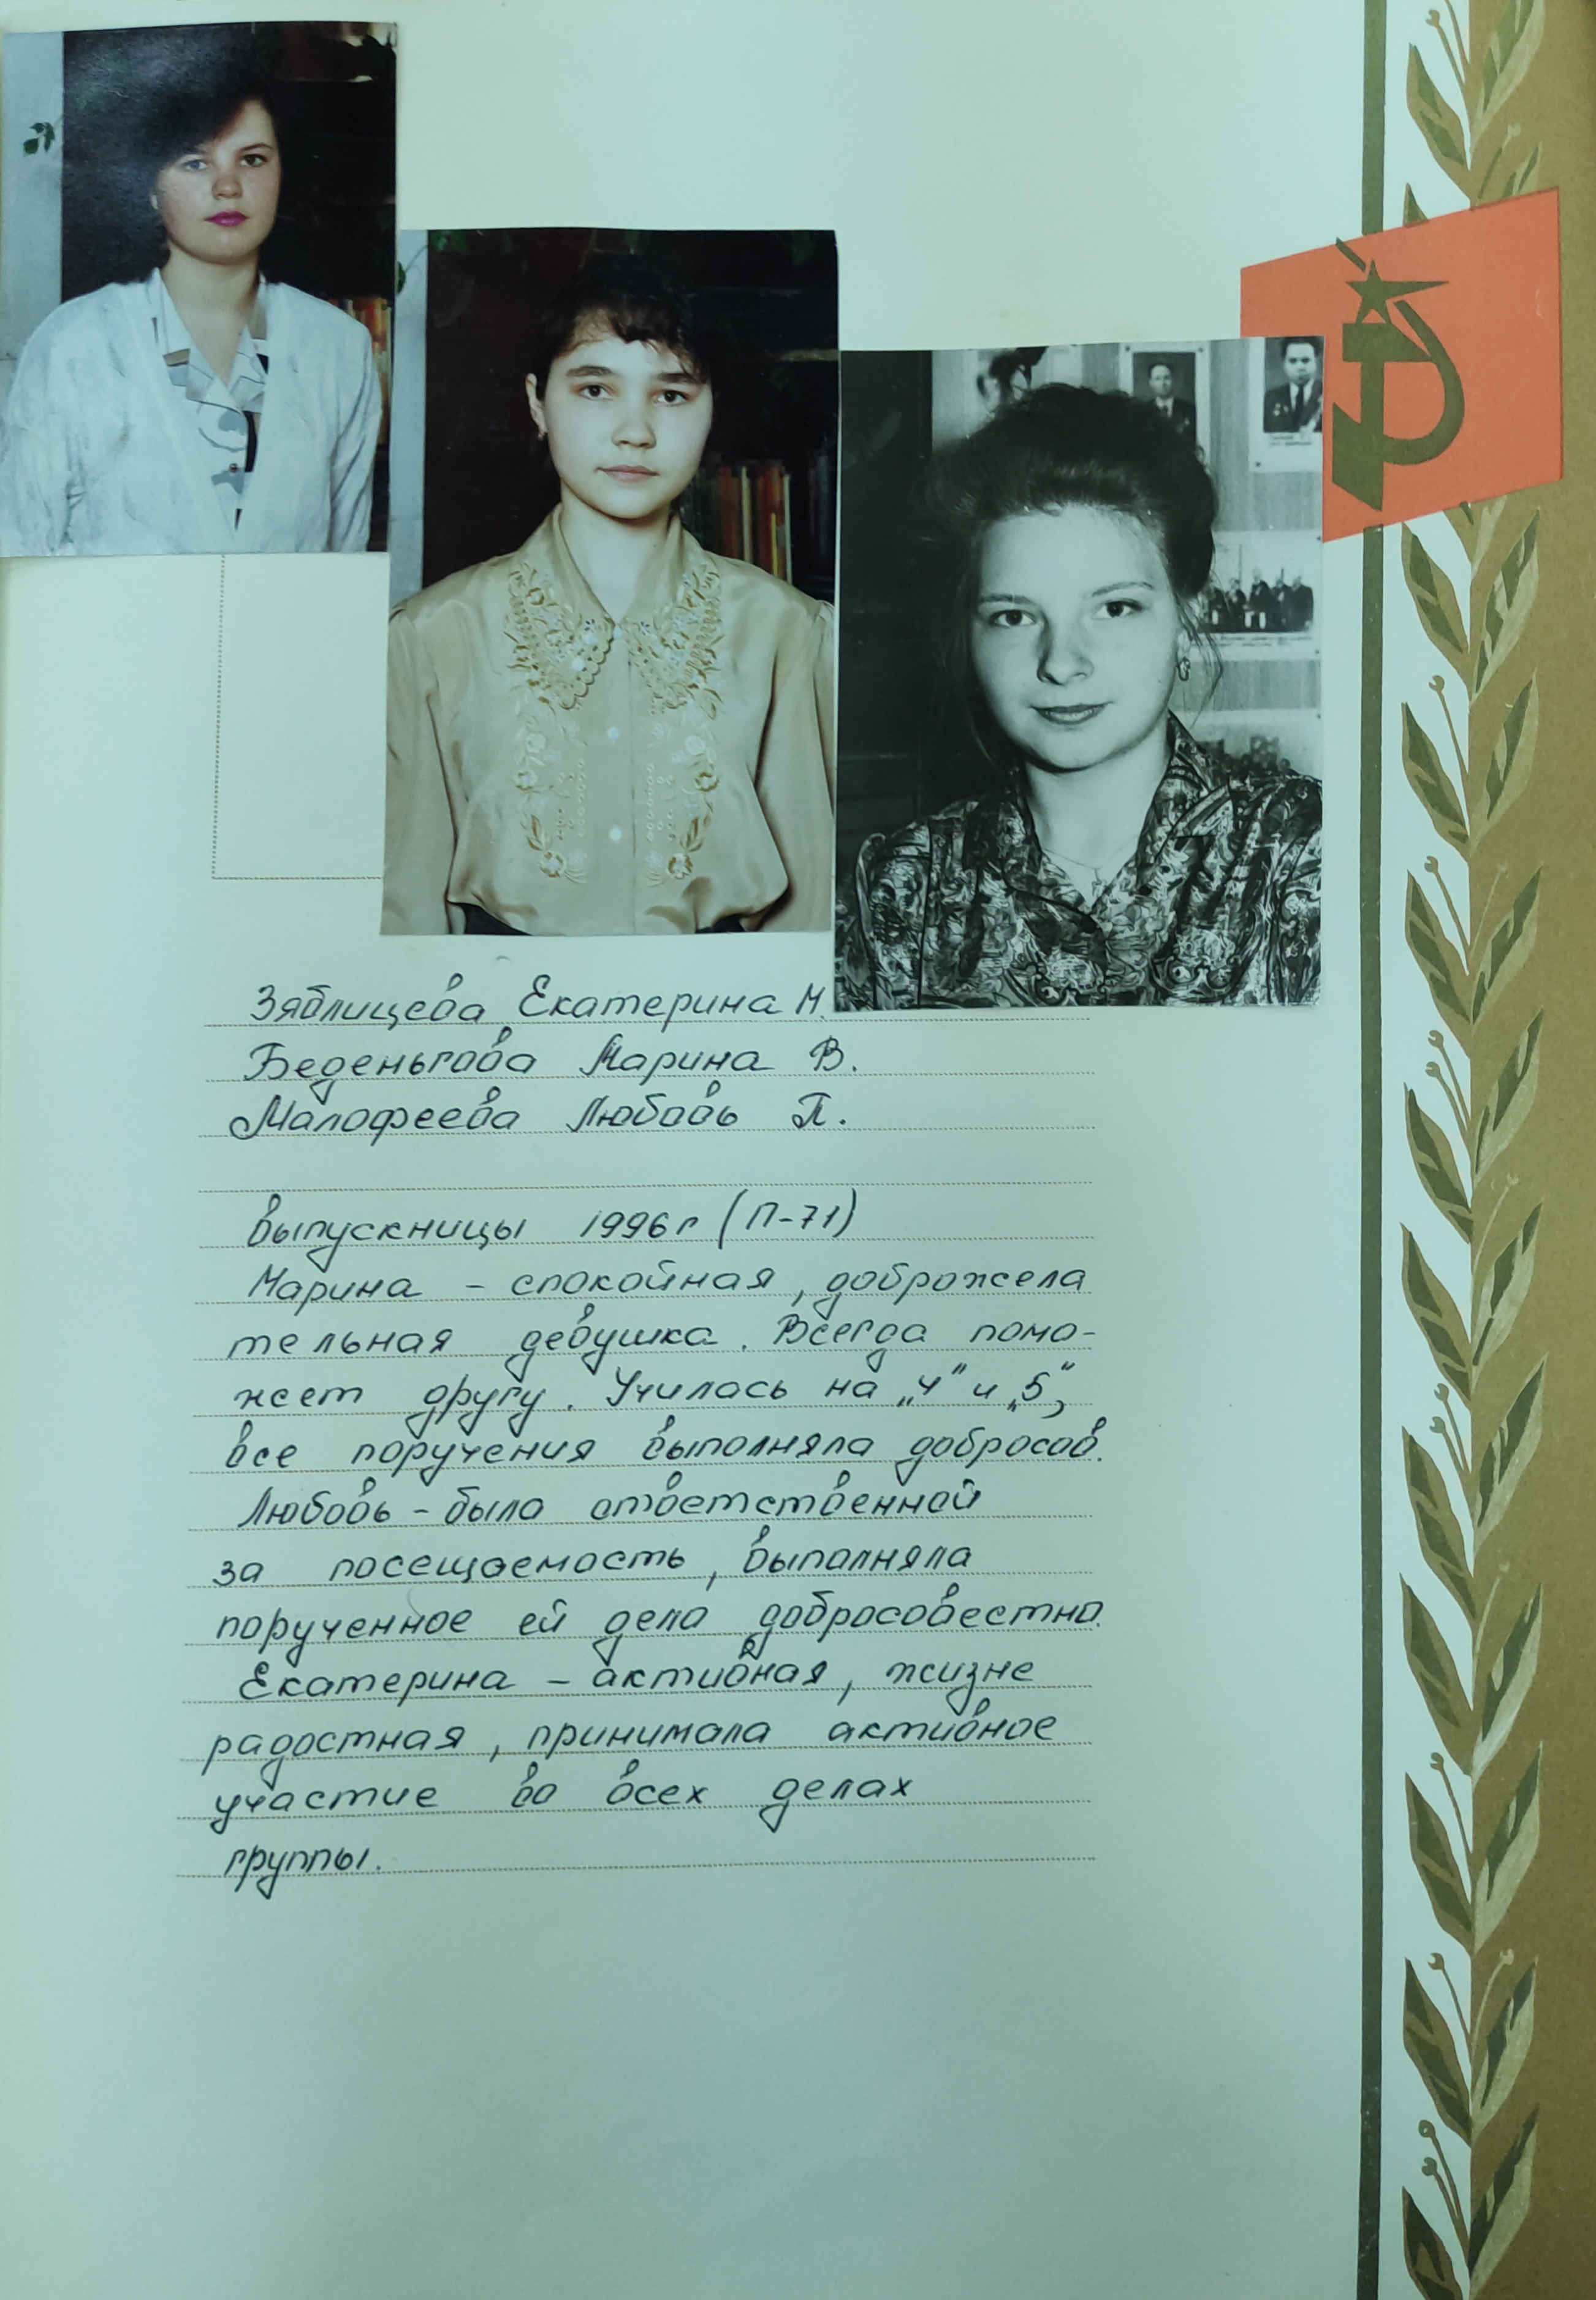 Зяблицева Екатерина Н.
Беденьгова Марина В.
Малофеева Любовь П.
выпускницы 1996 г (П-71)
Марина - спокойная, доброжела
тельная девушка. Всегда помо-
жет другу. Училась на „4" и „5",
все поручения выполняла добросов.
Любовь - была ответственной
за посещаемость, выполняла
порученное ей дело добросовестно.
Екатерина - активная, жизне
радостная, принимала активное
участие во всех делах
группы.